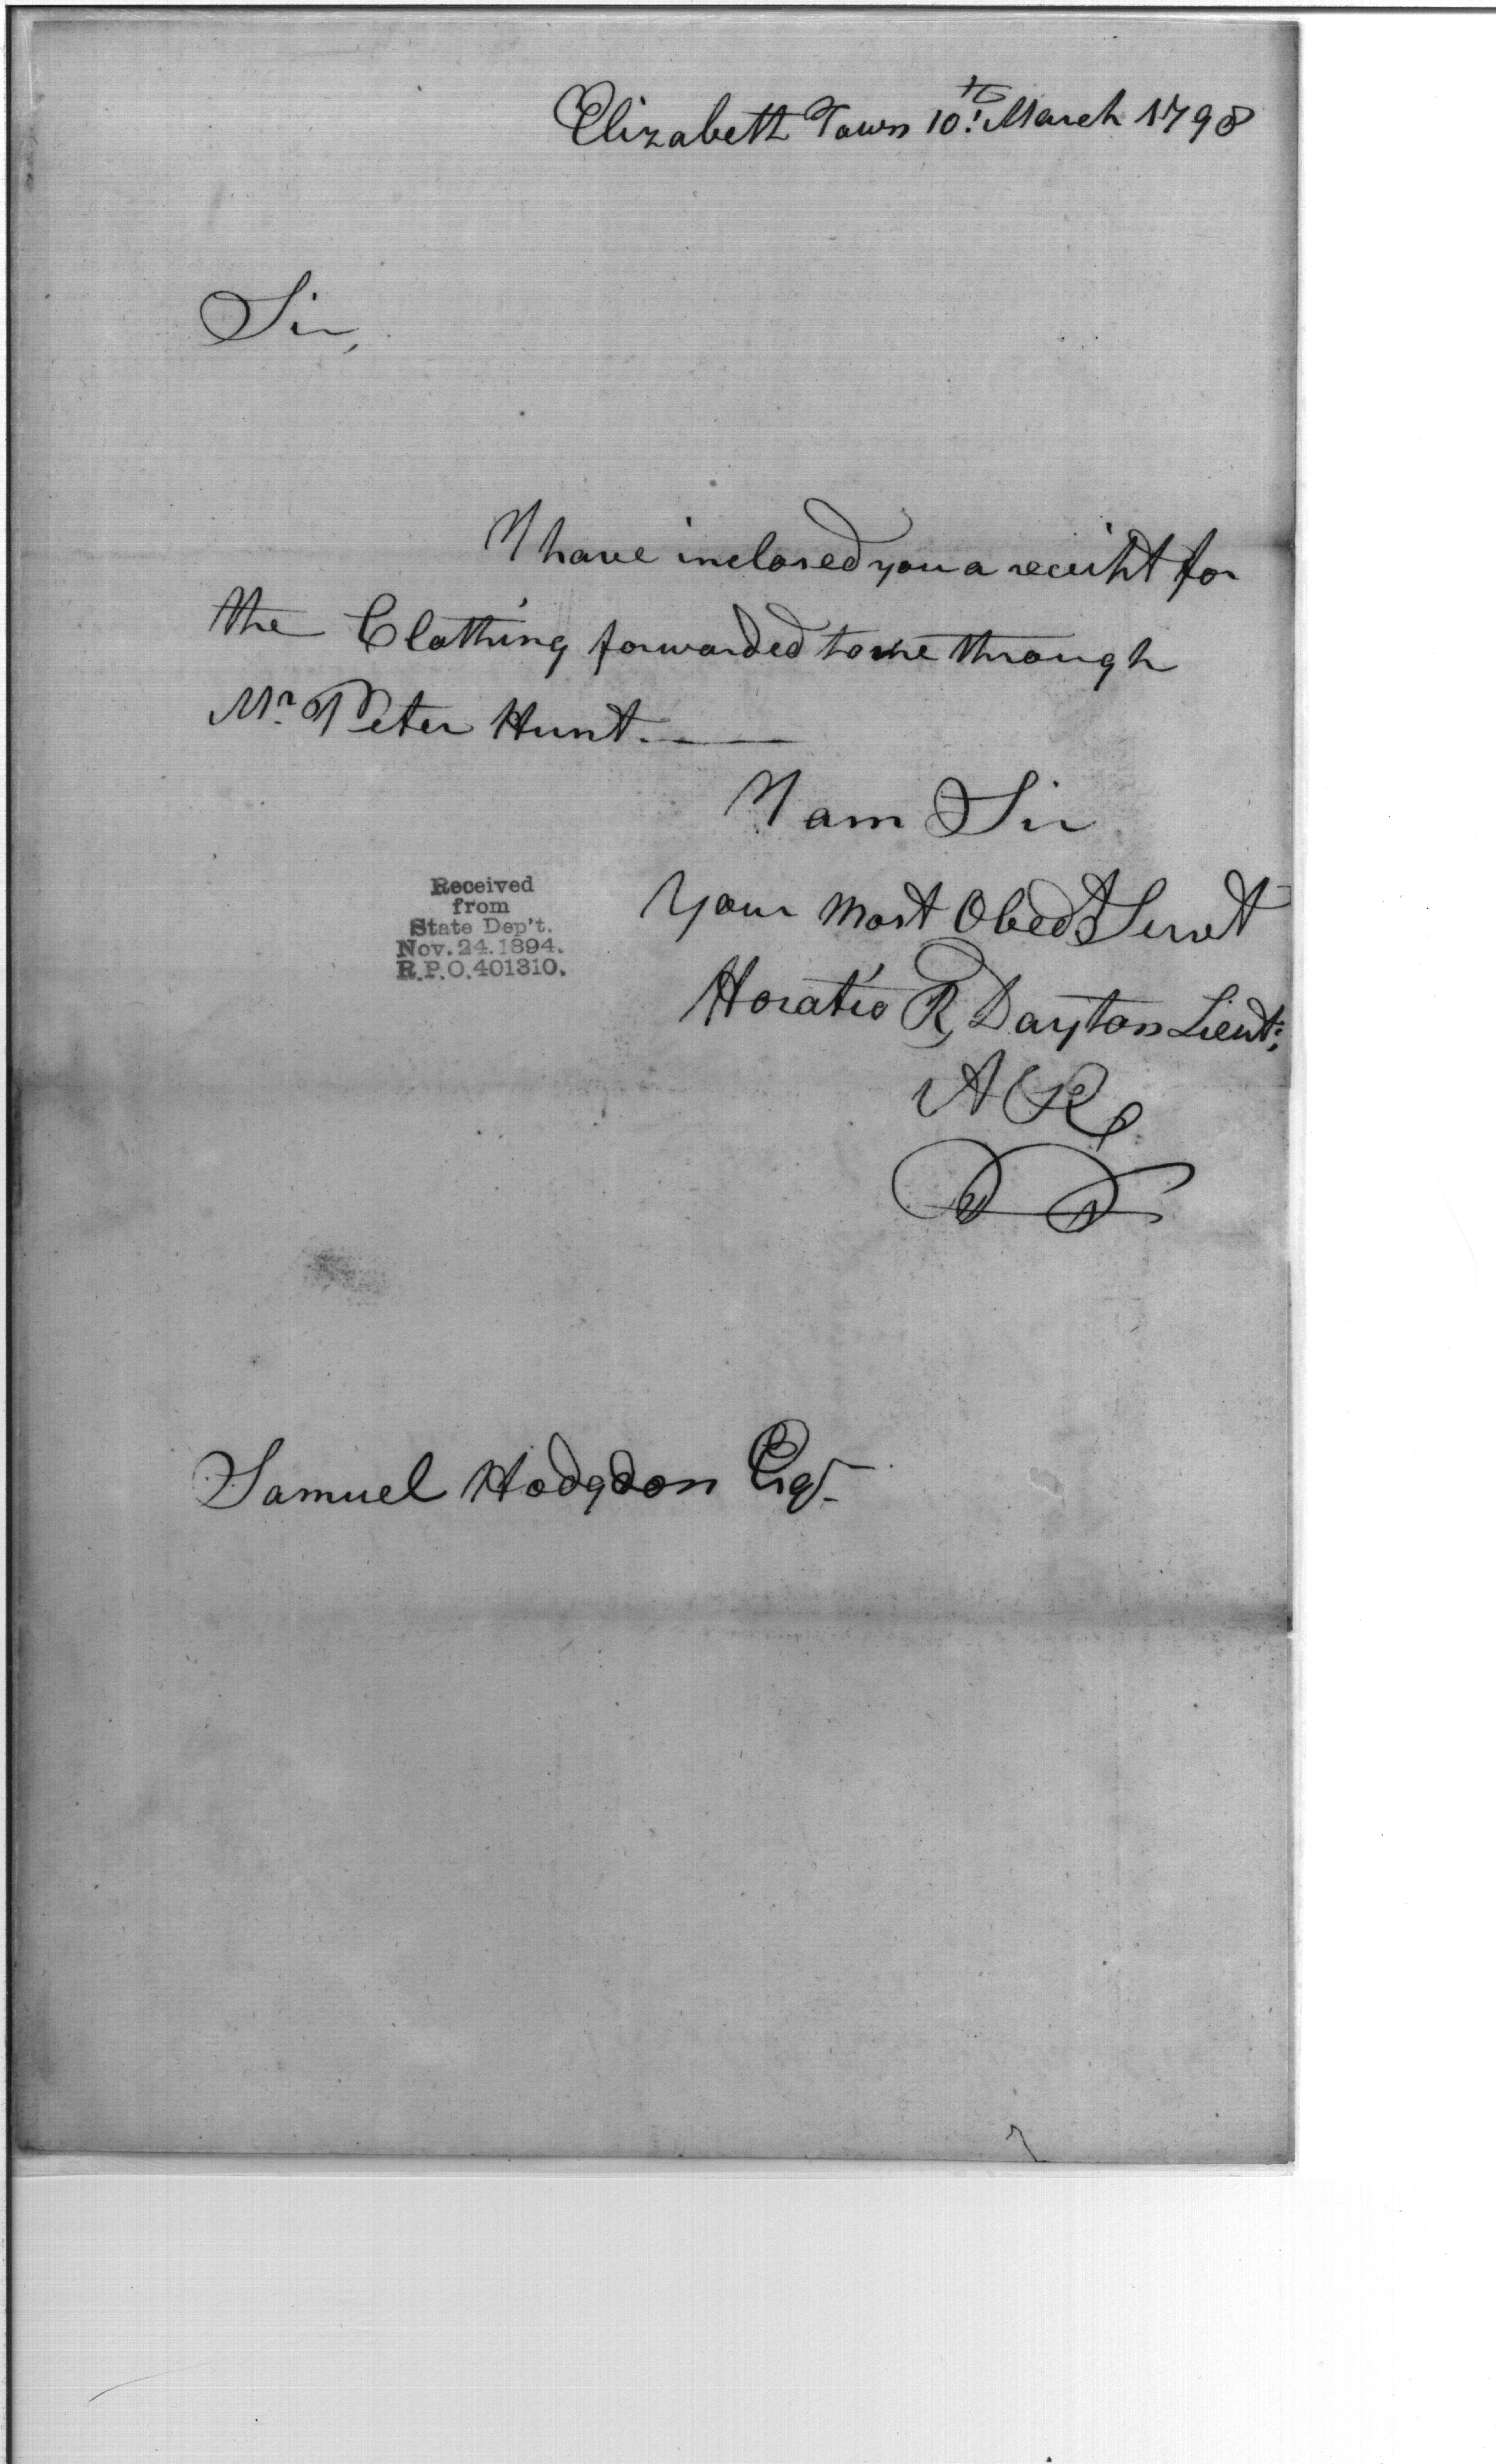 Elizabeth Town 10th March 1798
Sir,
I have inclosed you a receipt for
the Clothing forwarded to me through
Mr. Peter Hunt.
I am Sir
Your most Obedt Servt
Horatio R, Dayton Lieut;
A R
Received
from
State Dep't.
Nov. 24. 1894.
R.P.O. 401310.
Samuel Hodgdon Esqr.